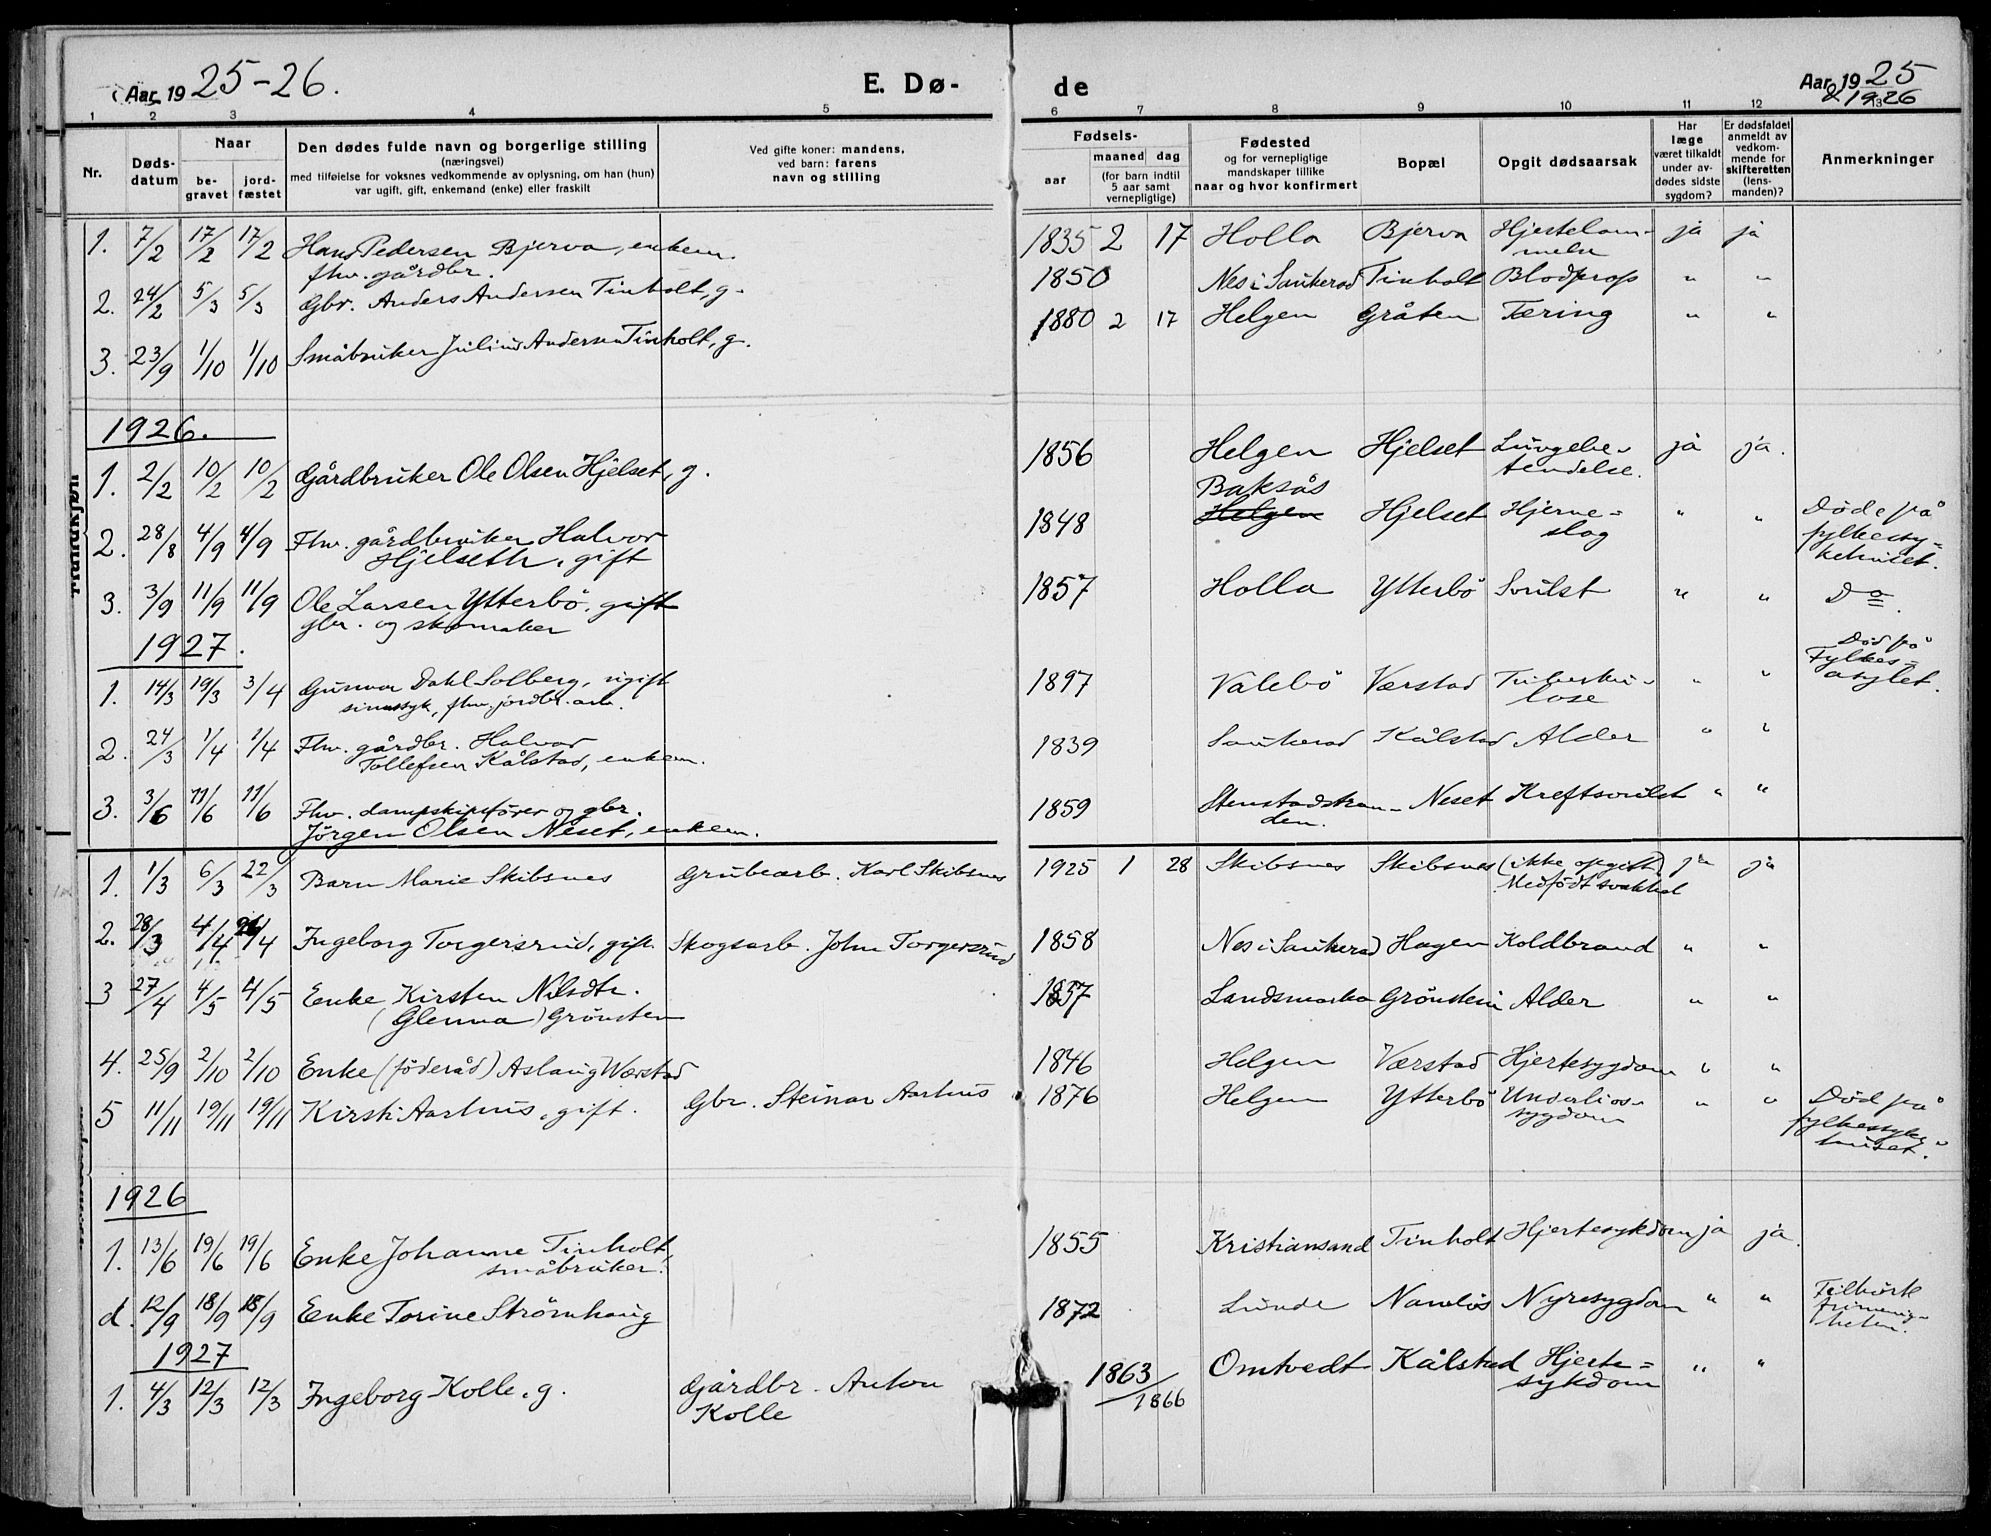 Aar 1925-26. E. Dø- de Aar 1925
& 1926
1 2 3 4 5 6 7 8 9 10 11 12 13
Nr. Døds-datum Naar be-gravet jord-fæstet Den dødes fulde navn og borgerlige stilling (næringsvei) med tilføielse for voksnes vedkommende av oplysning, om han (hun) var ugift, gift, enkemand (enke) eller fraskilt Ved gifte koner: mandens, ved barn: farens navn og stilling Fødsels- aar maaned dag (for barn indtil 5 aar samt vernepligtige) Fødested og for vernepligtige mandskaper tillike naar og hvor konfirmert Bopæl Opgit dødsaarsak Har læge været tilkaldt under av-dødes sidste sygdom? Er dødsfaldet anmeldt av vedkom-mende for skifteretten (lens-manden)? Anmerkninger
Mandkjøn
1. 7/2 17/2 17/2 Hans Pedersen Bjerva, enkem. 1835 2 17 Holla Bjerva Hjertelam- ja ja
fhv. gårdbr. melse
2. 24/2 5/3 5/3 Gbr. Anders Andersen Tinholt, g. 1850 Nes i Sauherad Tinholt Blodprop " "
3. 23/9 1/10 1/10 Småbruker Julius Andersen Tinholt, g. 1880 2 17 Helgen Gråten Tæring " "
1926.
1. 2/2 10/2 10/2 Gårdbruker Ole Olsen Hjelset, g. 1856 Helgen Hjelset Lungebe- ja ja.
tendelse.
2. 28/8 4/9 4/9 Fhv. gårdbruker Halvor 1848 Baksås Helgen Hjelset Hjerne- " " Døde på
Hjelseth, gift slag fylkessy-
kehuset.
3. 3/9 11/9 11/9 Ole Larsen Ytterbö, gift 1857 Holla Ytterbö Svulst " " Do.
gbr. og skomaker
1927.
1. 14/3 19/3 3/4 Gunvor Dahl Solberg, ugift 1897 Valebö Værstad Tuberku- " " Död på
sinnssyk, fhv. jordbr. arb. lose Fylkes-
asylet.
2. 24/3 1/4 1/4 Fhv. gårdbr. Halvor 1839 Sauherad Kålstad Alder " "
Tollefsen Kålstad, enkem.
3. 3/6 11/6 11/6 Fhv. dampskipsförer og gbr. 1859 Stenstadstran- Neset Kreftsvulst " "
Jörgen Olsen Neset, enkem. den.
1. 1/3 6/3 22/3 Barn Marie Skibsnes Grubearb. Karl Skibsnes 1925 1 28 Skibsnes Skibsnes (ikke opgit) ja ja
Medfödt svakhed
2. 28/3 4/4 4/4 Ingeborg Torgersrud, gift Skogsarb. John Torgersrud 1858 Nes i Sauherad Hagen Koldbrand " "
3 27/4 4/5 4/5 Enke Kirsten Nilsdtr. 1837 Landsmarka Grönstein Alder " "
(Glenna) Grönsten
4. 25/9 2/10 2/10 Enke (föderåd) Aslaug Værstad 1846 Helgen Værstad Hjertesygdom " "
5 11/11 19/11 19/11 Kirsti Aarhus, gift. Gbr. Steinar Aarhus 1876 Helgen Ytterbö Underlivs- " " Död på
sygdom fylkessyke-
huset.
1926
1. 13/6 19/6 19/6 Enke Johanne Tinholt, 1855 Kristiansand Tinholt Hjertesykdom ja ja.
småbruker.
d. 12/9 18/9 18/9 Enke Torine Strömhaug 1872 Lunde Namlös Nyresygdom " " Tilhörte
frimenig-
heten.
1927
1. 4/3 12/3 12/3 Ingeborg Kolle, g. Gårdbr. Anton 1863 Omtvedt Kålstad Hjerte- " "
Kolle 1866 sykdom